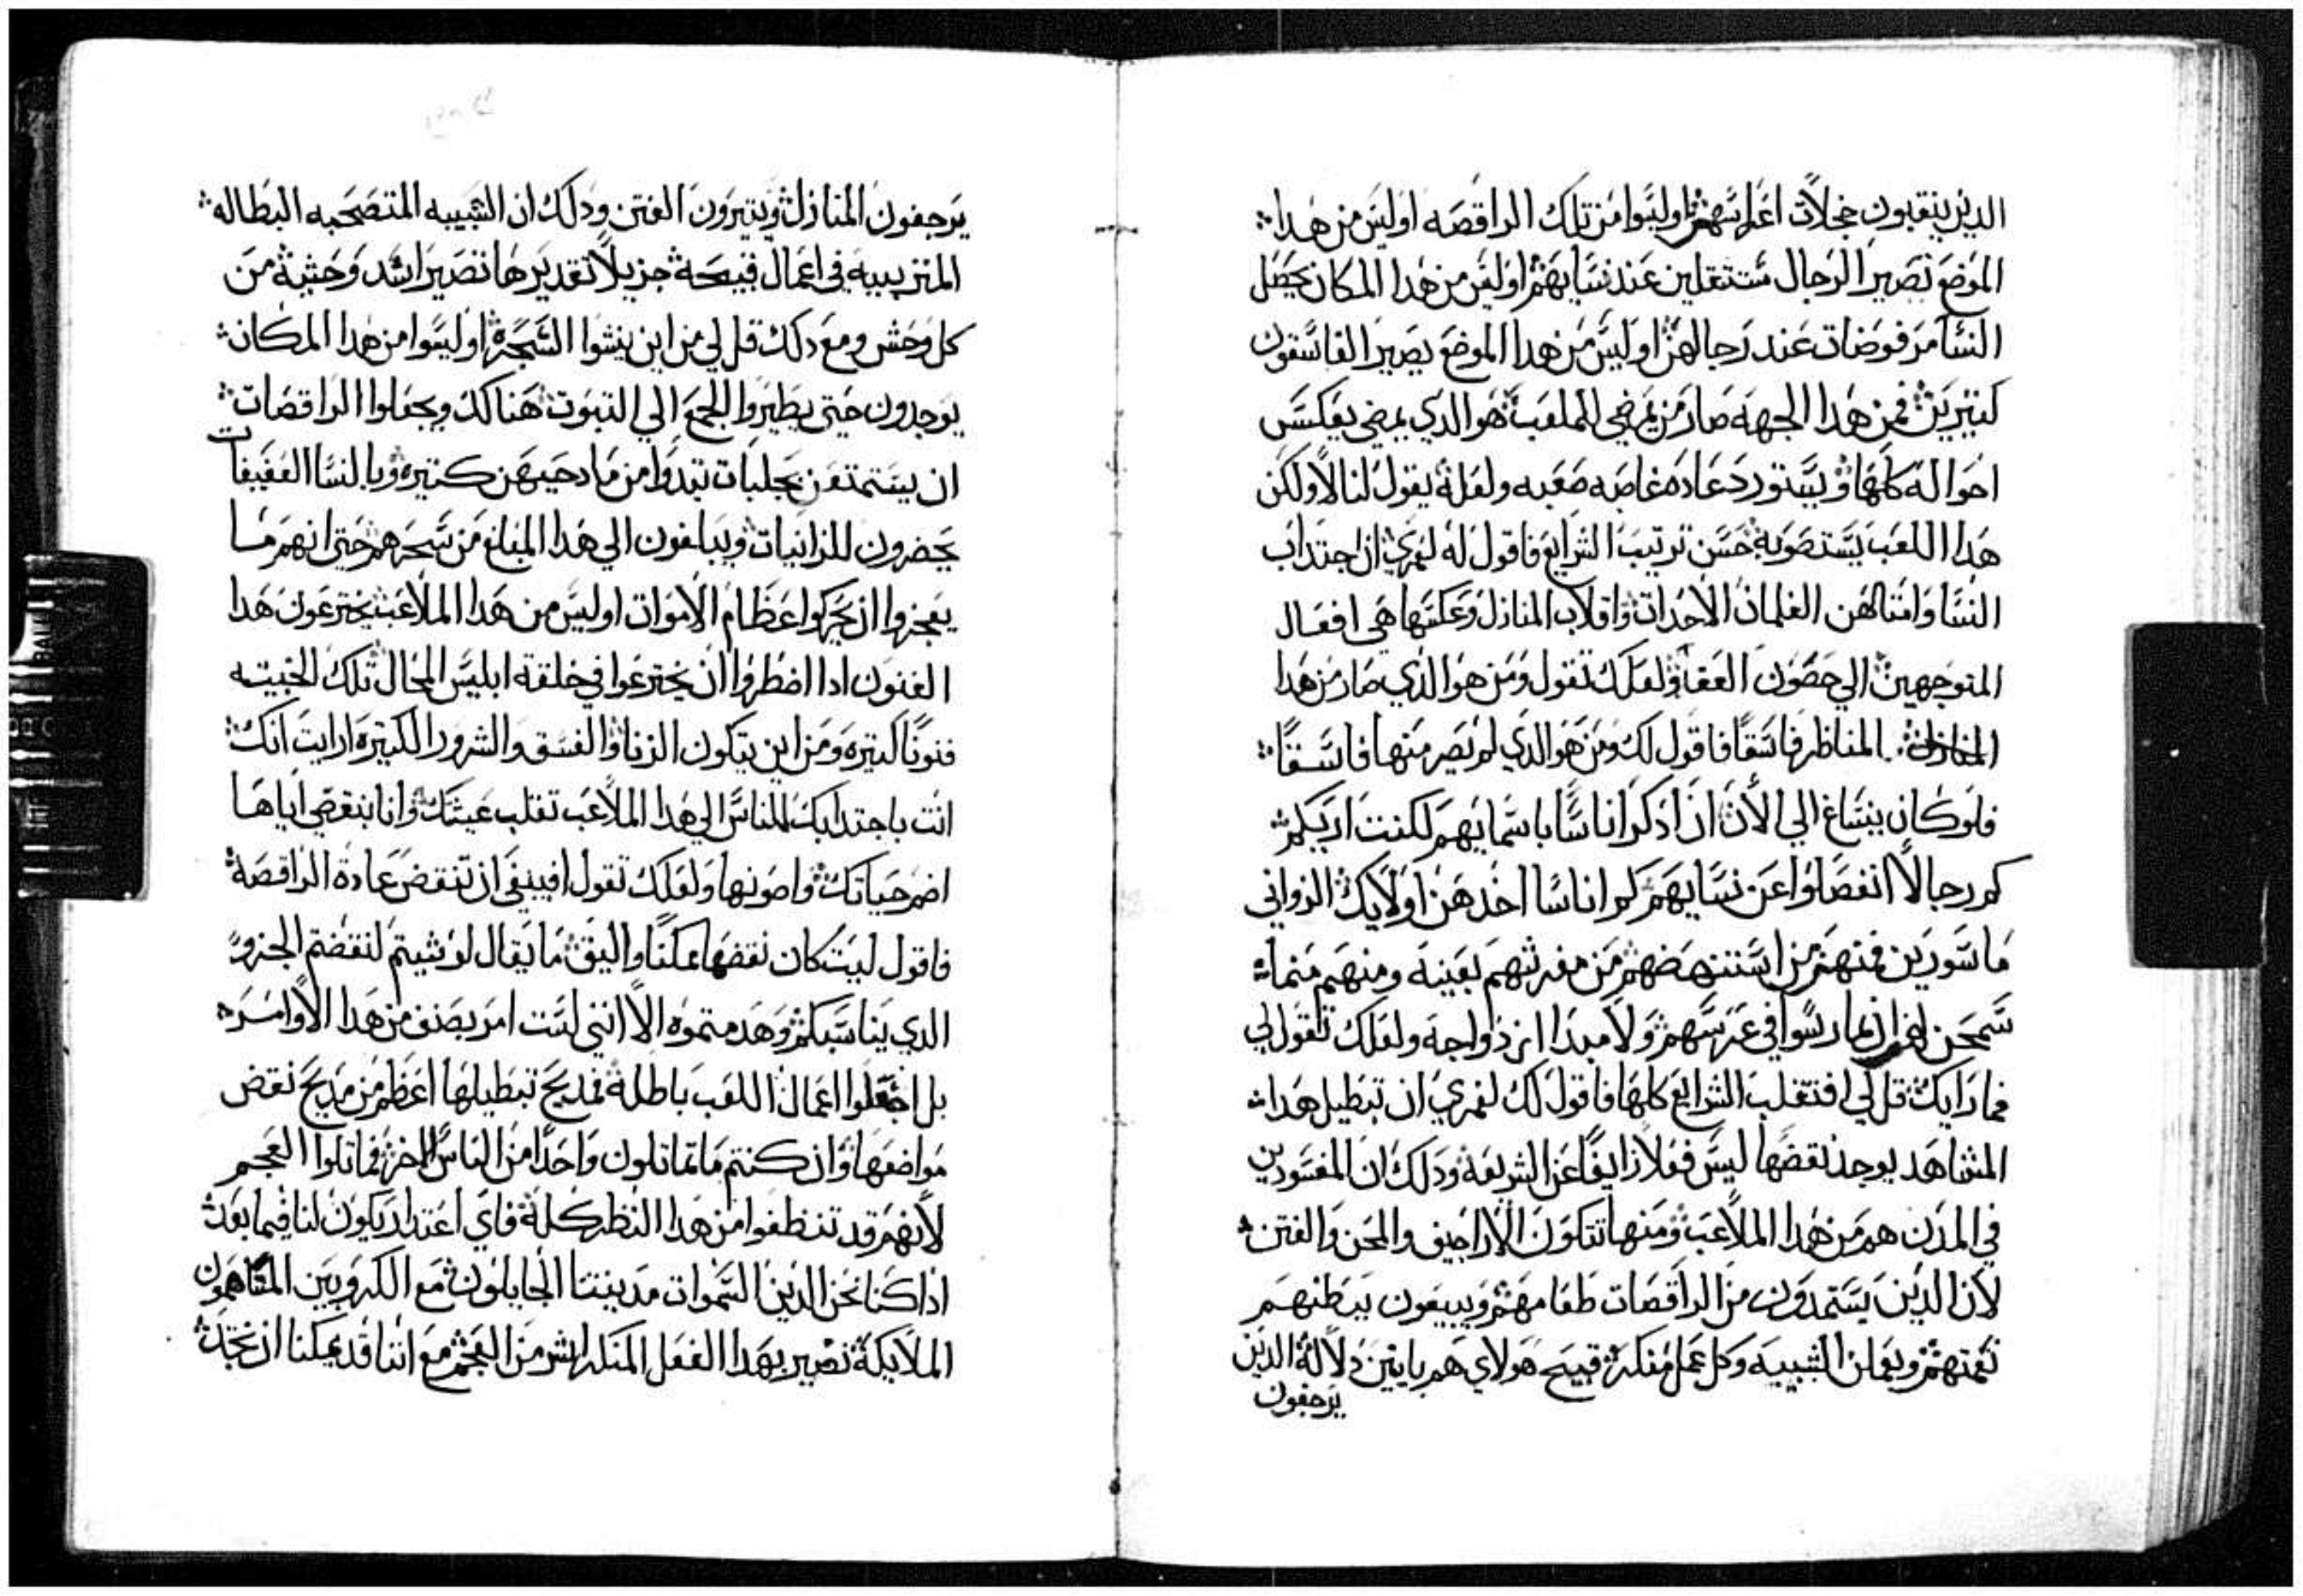 الدين ينقبون خجلات اعراسهم اوليسوا من تلك الراقصه اوليس من هدا
الموضع تصير الرجال مستثقلين عند نسايهم اوليس من هدا المكان يحصل
النسا مرفوضات عند رجالهن اوليس من هدا الموضع يصير الفاسقون
كتيرين فمن هدا الجهه صار من يمضي للملعب هو الدي يمضي يعكس
احواله كلها ويستورد عاده غاصبه صعبه ولعله يقول لنا لا ولكن
هدا اللعب يستصوبه حسن ترتيب الشرايع فاقول له لعمري ان اجتداب
النسا وامتالهن الغلمان الاحدات واقلاب المنازل وعكسها هي افعال
المتوجهين الي حصون العقا ولعلك تقول ومن هو الدي صار من هدا
المناظر فاسقا فاقول لك ومن هو الدي لم يصير منها فاسقا
فلو كان ينساغ الي الان ان ادكر اناسا باسمايهم لكنت اريكم
كم رجالا انفصلوا عن نسايهم كم اناسا اخدهن اولايك الزواني
ماسورين فمنهم من استنهضهم من مفرشهم بعينه ومنهم منما
سمحن لهم ان يمارسوا في عرسهم ولا مبدا ازدواجه ولعلك تقول لي
فما رايك قل لي افتقلب الشرايع كلها فاقول لك لعمري ان تبطيل هدا
المشاهد يوجد نقضها ليس فعلا زايفا عن الشريعه ودلك ان المفسودين
في المدن هم من هدا الملاعب ومنها تتكون الاراجيف والمحن والفتن
لان الدين يستمدون من الراقصات طعامهم ويبيعون ببطنهم
نغمتهم ويعملن الشبيبه وكل عمل منكر قبيح هولاي هم باينين دلالة الدين
يرجفون
يرجفون المنازل ويتيرون الفتن ودلك ان الشبيبه المتصحبه البطاله
المتربيه في اعمال قبيحة جزيلا تقديرها تصير اشد وحشية من
كل وحش ومع دلك قل لي من اين ينشوا السحرة اوليسوا من هدا المكان
يوجدون حتي يطيروا الجمع الي التبوت هناك ويجعلوا الراقصات
ان يستمتعن بجلبات تبدوا من مادحيهن كتيره وبالنسا العفيفات
يحضرون للزانيات ويبلغون الي هدا المبلغ من سحرهم حتي انهم ما
يعجزوا ان يحركوا عظام الاموات اوليس من هدا الملاعب يخترعون هدا
الفنون ادا اضطروا ان يخترعوا في خلقة ابليس المحال تلك الخبيته
فنونا كتيره ومن اين يتكون الزنا والفسق والشرور الكتيره ارايت انك
انت باجتدابك للناس الي هدا الملاعب تقلب عيشتك وانا بنقضي اياها
اضم حياتك واصونها ولعلك تقول افينبغي ان تنقض عادة الراقصة
فاقول ليت كان نقضها ممكنا واليق ما يقال لو شيتم لنقضتم الجزو
الدي يناسبكم وهدمتموه الا انني لست امر بصنف من هدا الاوامر
بل اجعلوا اعمال اللعب باطلة فمديح تبطيلها اعظم من مديح نقض
مواضعها وان كنتم ما تماتلون واحدا من الناس الاخر فماتلوا العجم
لانهم قد تنظفوا من هدا النظر كلة فاي اعتدار يكون لنا فيما بعد
ادا كنا نحن الدين السموات مدينتنا الجايلون مع الكروبين المساهمون
الملايكة نصير بهدا الفعل المنكر اشر من العجم مع اننا قد يمكنا ان نجد